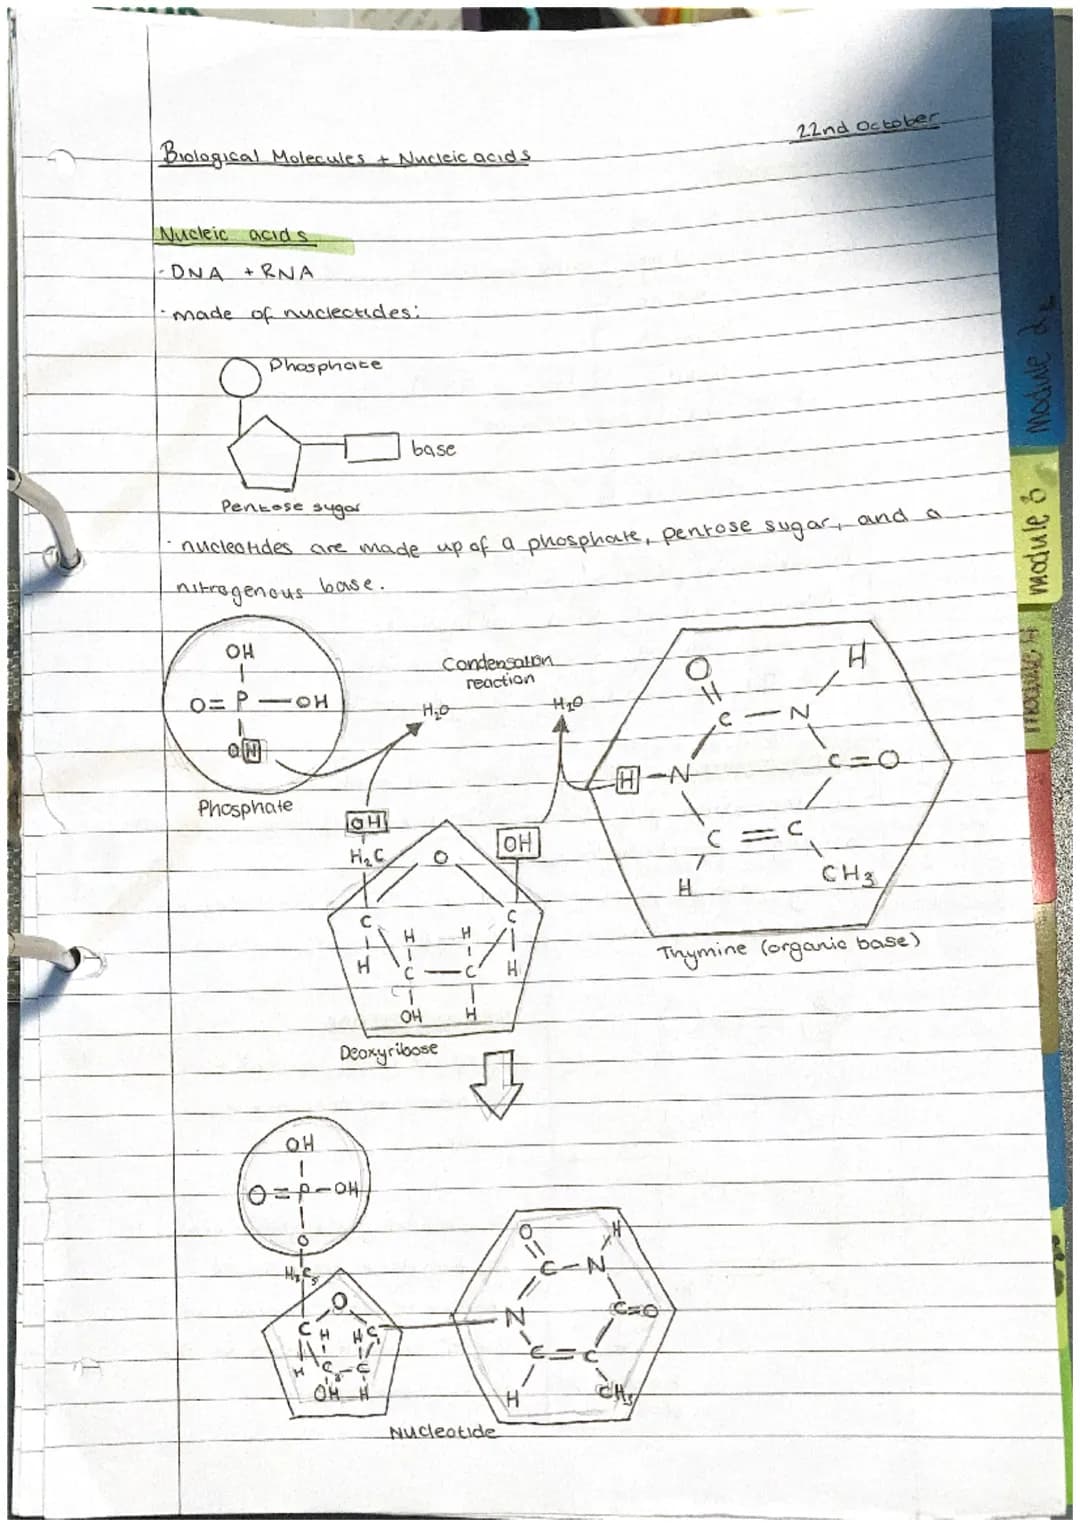 22nd October
Biological Molecules + Nucleic acids
Nucleic acids
· DNA + RNA
· made of nucleotides:
Phosphate
base
Pentose sugar
· nucleotides are made up of a phosphate, pentose sugar, and a
nitrogenous base.
OH
O=P—OH
OH
Phosphate
Condensation
reaction
H₂O
H₂O
OH
H₂C
O
OH
C
C
H
H
H
C—C
H
OH
H
Deoxyribose
O
H
C—N
H—N
C=O
C=C
H
CH₃
Thymine (organic base)
OH
O=P—OH
O
H₂C
O
C
H
H
C
H
C—C
OH
H
O
H
C—N
N
C=O
C=C
H
CH₃
Nucleotide
module 2
module 3
module 4